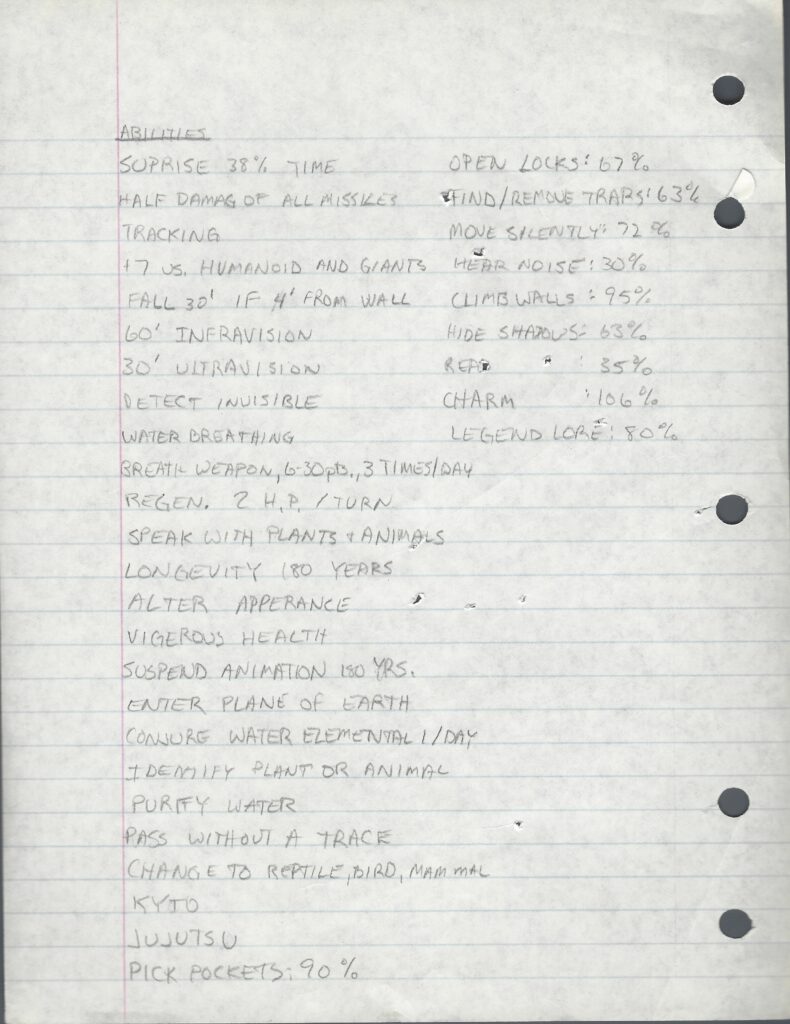 ABILITIES
SUPRISE 38% TIME OPEN LOCKS: 67%
HALF DAMAG OF ALL MISSILES FIND/REMOVE TRAPS: 63%
TRACKING MOVE SILENTLY: 72%
+7 VS. HUMANOID AND GIANTS HEAR NOISE: 30%
FALL 30' IF 4' FROM WALL CLIMB WALLS: 95%
60' INFRAVISION HIDE SHADOWS: 63%
30' ULTRAVISION READ " : 35%
DETECT INVISIBLE CHARM : 106%
WATER BREATHING LEGEND LORE: 80%
BREATH WEAPON, 6-30 pts., 3 TIMES/DAY
REGEN. 2 H.P. / TURN
SPEAK WITH PLANTS + ANIMALS
LONGEVITY 180 YEARS
ALTER APPERANCE
VIGEROUS HEALTH
SUSPEND ANIMATION 180 YRS.
ENTER PLANE OF EARTH
CONJURE WATER ELEMENTAL 1/DAY
IDENTIFY PLANT OR ANIMAL
PURIFY WATER
PASS WITHOUT A TRACE
CHANGE TO REPTILE, BIRD, MAMMAL
KYTO
JUJUTSU
PICK POCKETS: 90%